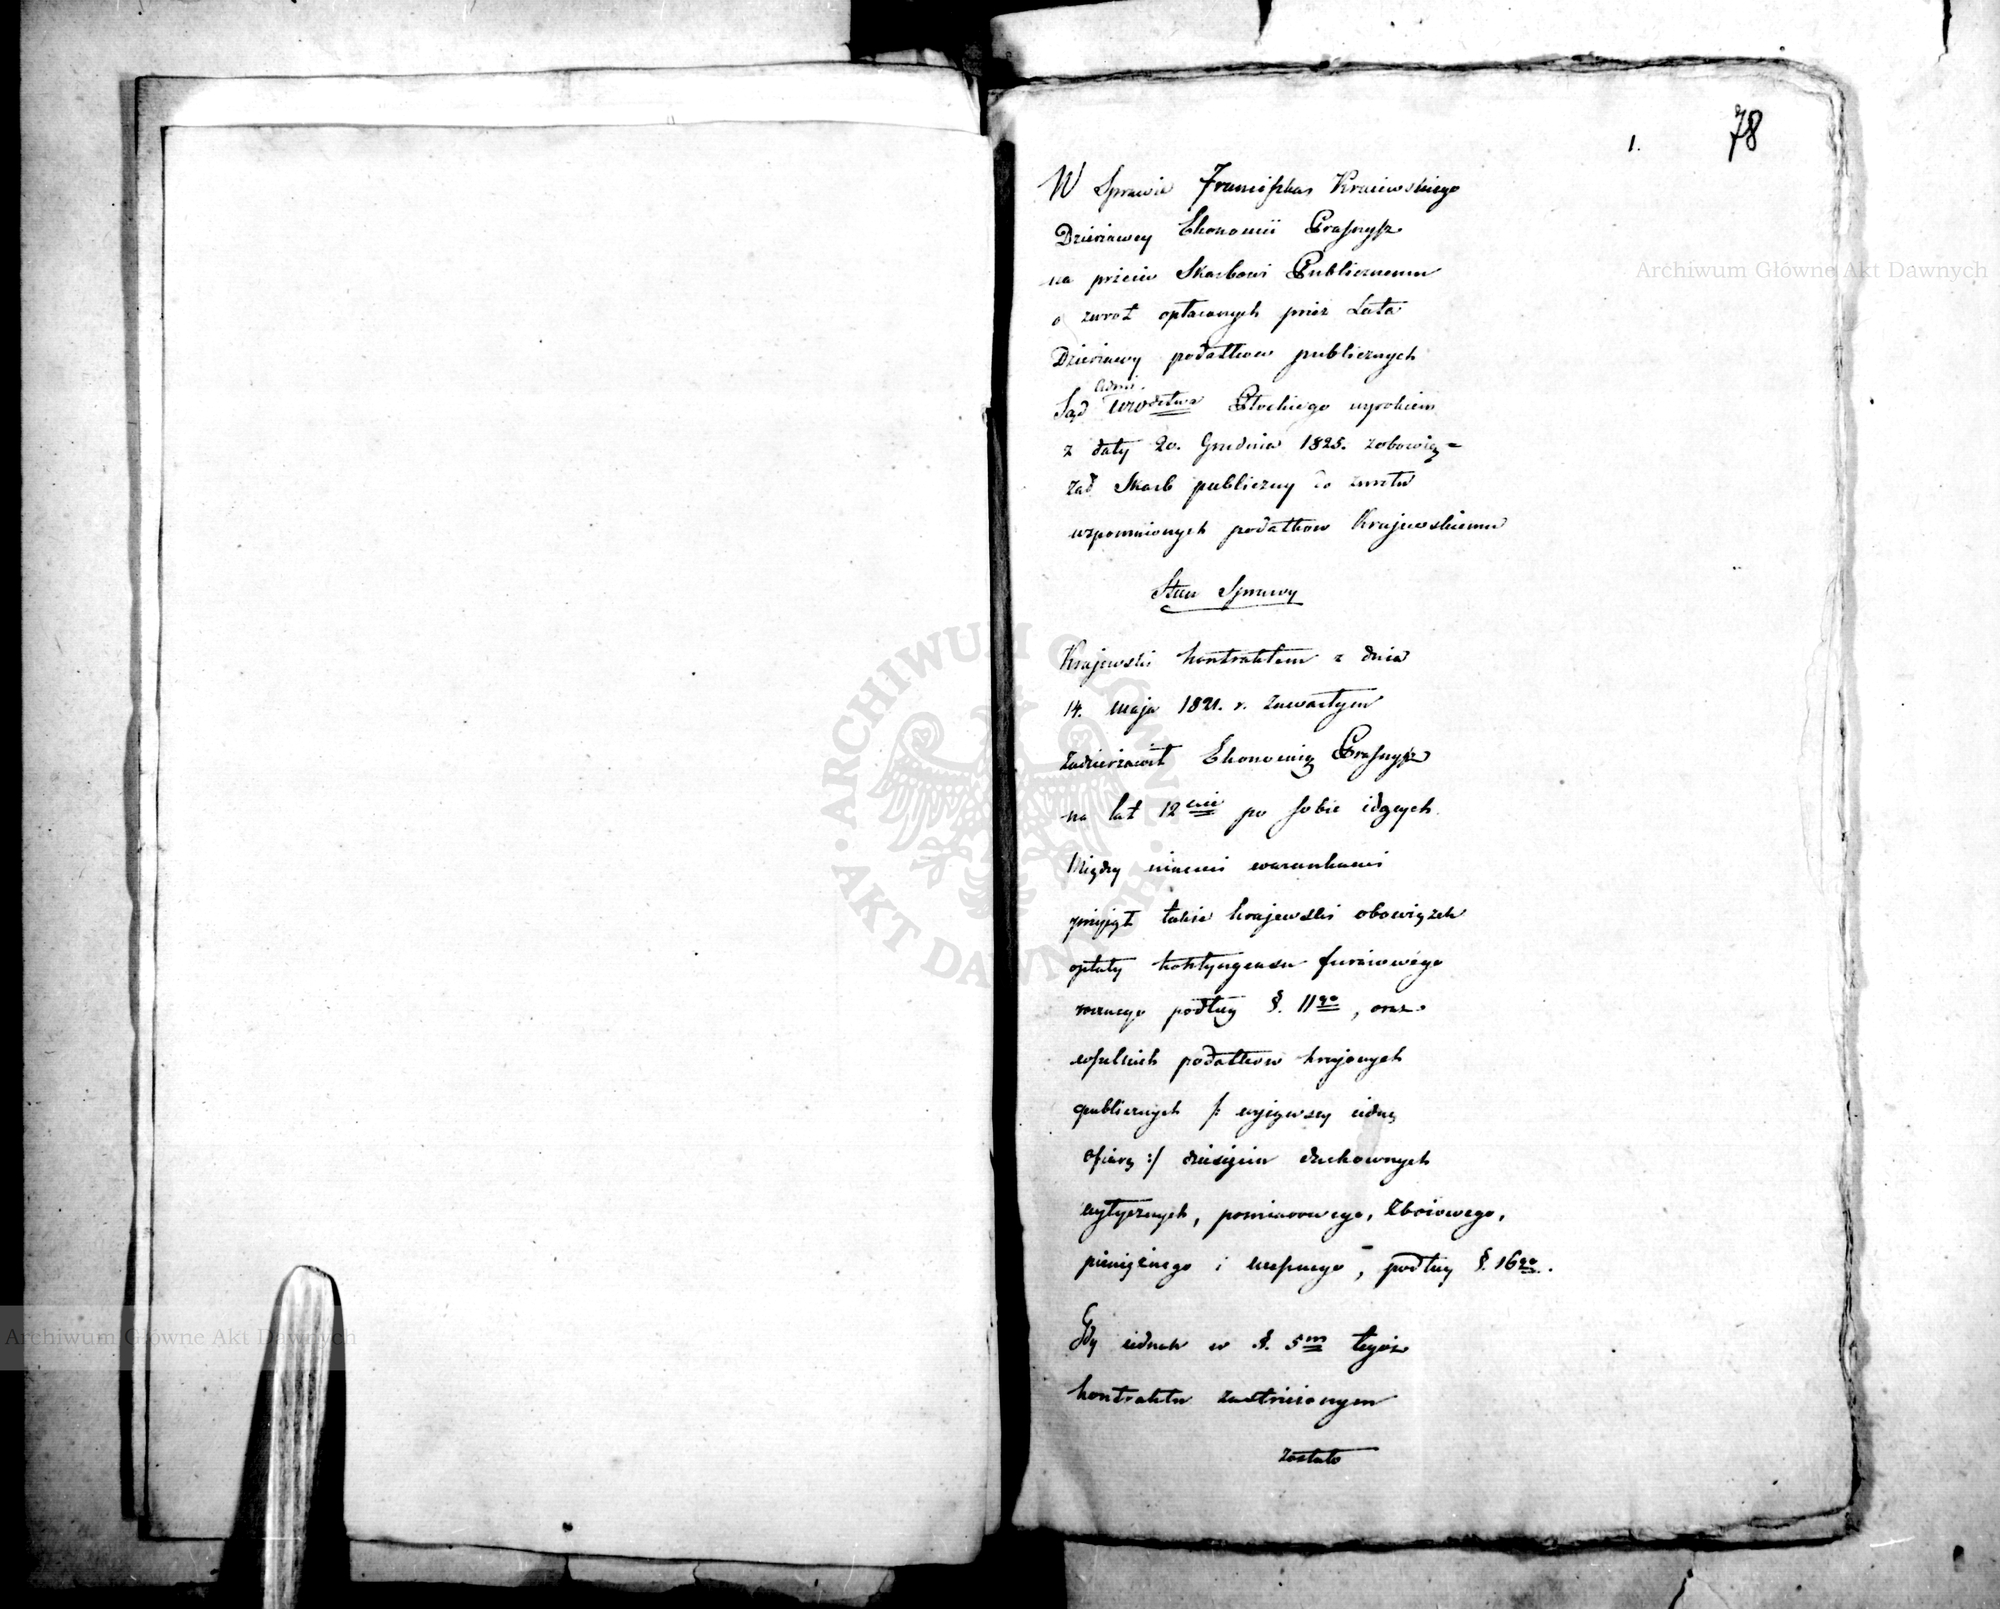 78
1.
W Sprawie Franciszka Kraiewskiego
Dzierżawcy Ekonomii Prasnysz
na przeciw Skarbowi Publicznemu
o zwrot opłaconych przez Lata
Dzierżawy podatkow publicznych
Admi.
Sąd Wwodztwa Płockiego wyrokiem
z daty 20. Grudnia 1825. zobowią=
zał Skarb publiczny do zwrotu
wspomnionych podatkow Krajewskiemu
Stan Sprawy
Krajewski kontraktem z dnia
14. Maja 1821. r. zawartym
zadzierżawił Ekonomią Prasnysz
na lat 12cie po sobie idących
Między innemi warunkami
przyjął także Krajewski obowiązek
opłaty kontyngensu furażowego
rocznego podług §. 11go, oraz
wszelkich podatkow krajowych
publicznych /: wyjąwszy iedną
ofiarę :/ dziesięcin duchownych
wytycznych, pomiarowego, zbożowego,
pieniężnego i mesznego, podług §. 16go.
Gdy iednak w §. 5m tegoż
kontraktu zastrzeżonym
zostało
Archiwum Główne Akt Dawnych
Archiwum Główne Akt Dawnych
ARCHIWUM GŁÓWNE · AKT DAWNYCH ·